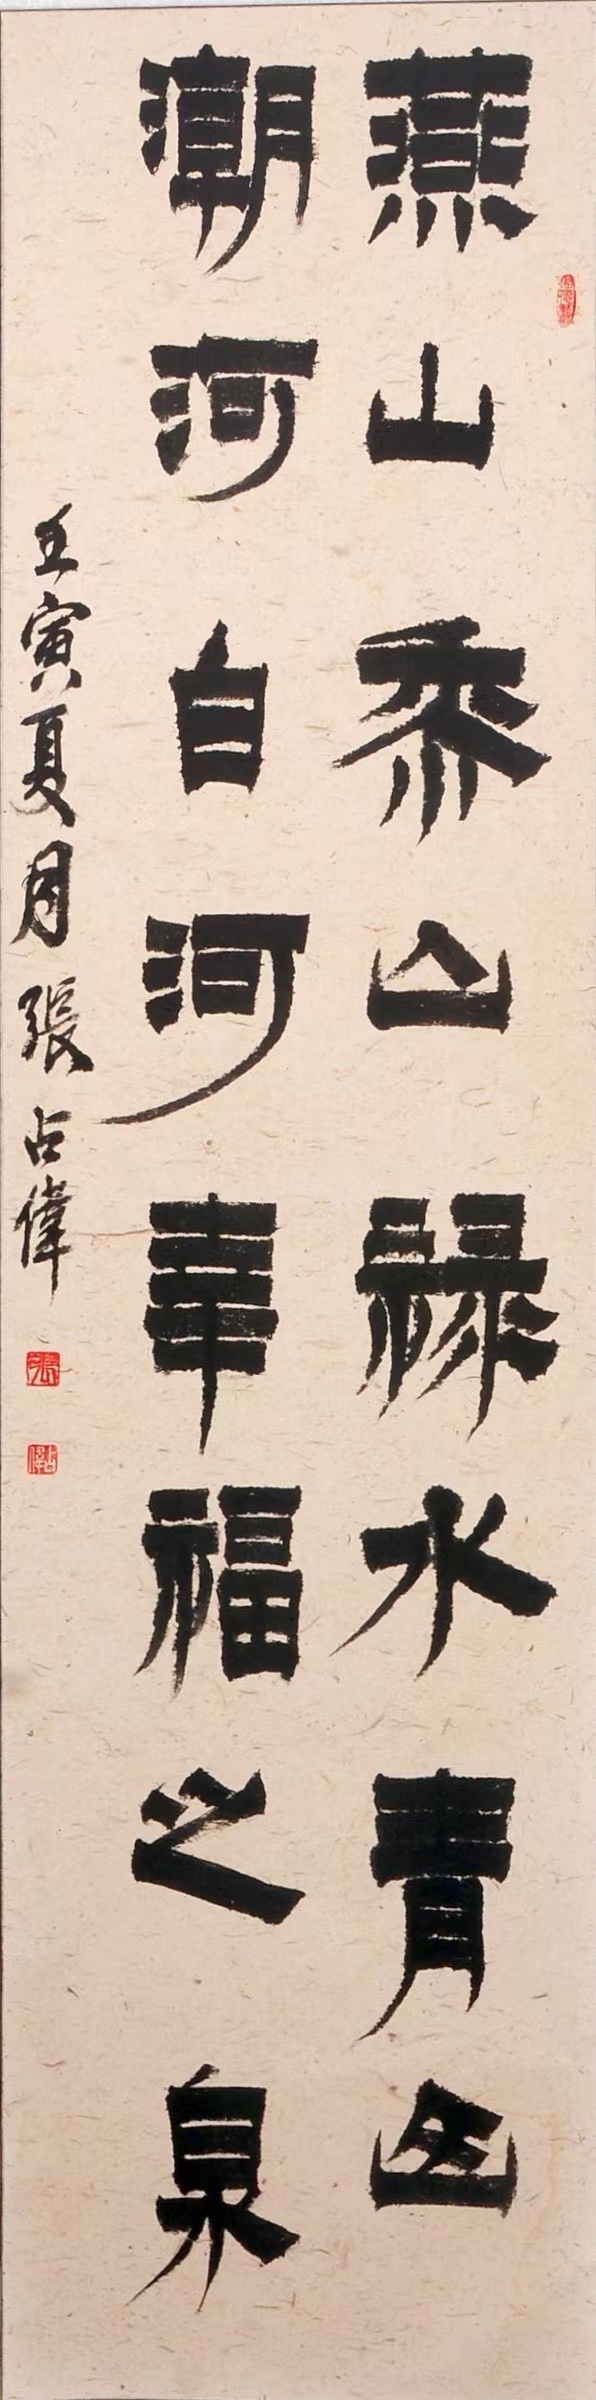 燕山黍山禄水青山
潮河白河幸福之泉
壬寅夏月張占偉